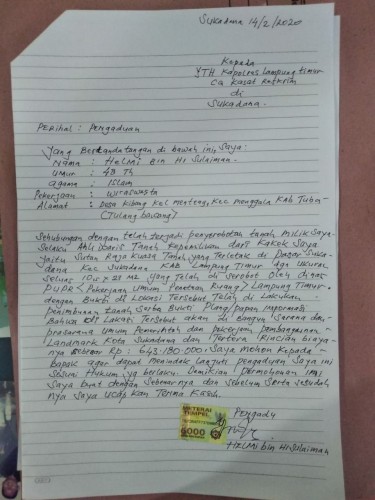 Sukadana 14/2/2020
Kepada
YTH Kapolres Lampung Timur
CQ Kasat Reskrim
di
Sukadana.
Perihal : Pengaduan
Yang Bertandatangan di bawah ini, Saya:
Nama : HELMI Bin Hi Sulaiman.
Umur : 48 Th
Agama : Islam
Pekerjaan : Wiraswasta
Alamat : Desa Kibang Kec Menteng, Kec menggala Kab Tuba
(Tulang bawang)
Sehubungan dengan telah terjadi penyerobotan tanah milik Saya
Selaku Ahli Waris Tanah Kepemilikan dari Kakek Saya
Yaitu Sutan Raja Kuasa Tanah yang Terletak di Pasar Suka-
dana Kec Sukadana KAB Lampung Timur dgn Ukuran
Seluas M2 yang Telah di Serobot oleh dinas
PUPR <Pekerjaan Umum Penataan Ruang> Lampung Timur.
dengan Bukti di Lokasi Tersebut Telah di Lakukan
penimbunan tanah Serta Bukti Plang/papan Informasi
Bahwa di Lokasi Tersebut akan di Bangun Sarana dan
prasarana Umum Pemerintah dan pekerjaan pembangunan
Landmark Kota Sukadana dan Tertera Rincian biaya
nya Sebesar Rp : 643.180.000. Saya Mohon Kepada
bapak agar dapat Menindak Lanjuti pengaduan Saya ini
Sesuai Hukum yg berlaku. Demikian Permohonan ini
Saya buat dengan Sebenarnya dan Sebelum Serta Sesudah
nya Saya Ucapkan Terima Kasih.
Pengadu
METERAI
TEMPEL
6000
HELMI bin Hi Sulaiman